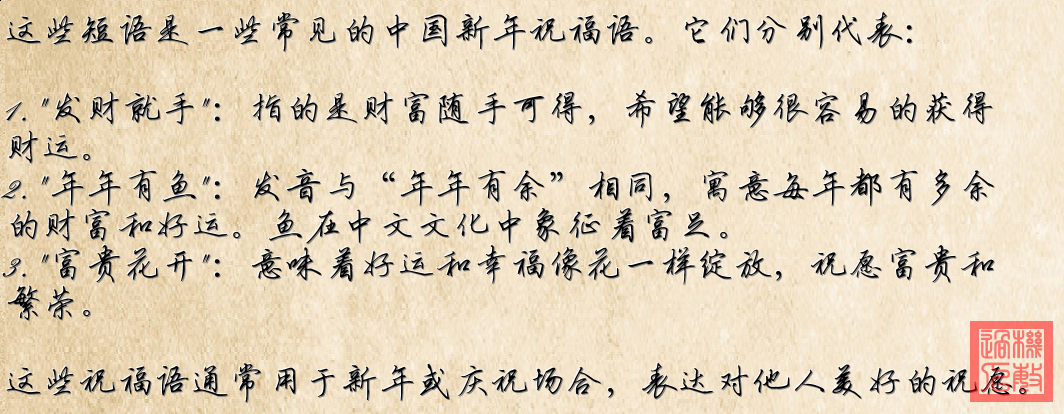 这些短语是一些常见的中国新年祝福语。它们分别代表：
1. "发财就手"：指的是财富随手可得，希望能够很容易的获得
财运。
2. "年年有鱼"：发音与“年年有余”相同，寓意每年都有多余
的财富和好运。鱼在中文文化中象征着富足。
3. "富贵花开"：意味着好运和幸福像花一样绽放，祝愿富贵和
繁荣。
这些祝福语通常用于新年或庆祝场合，表达对他人美好的祝愿。